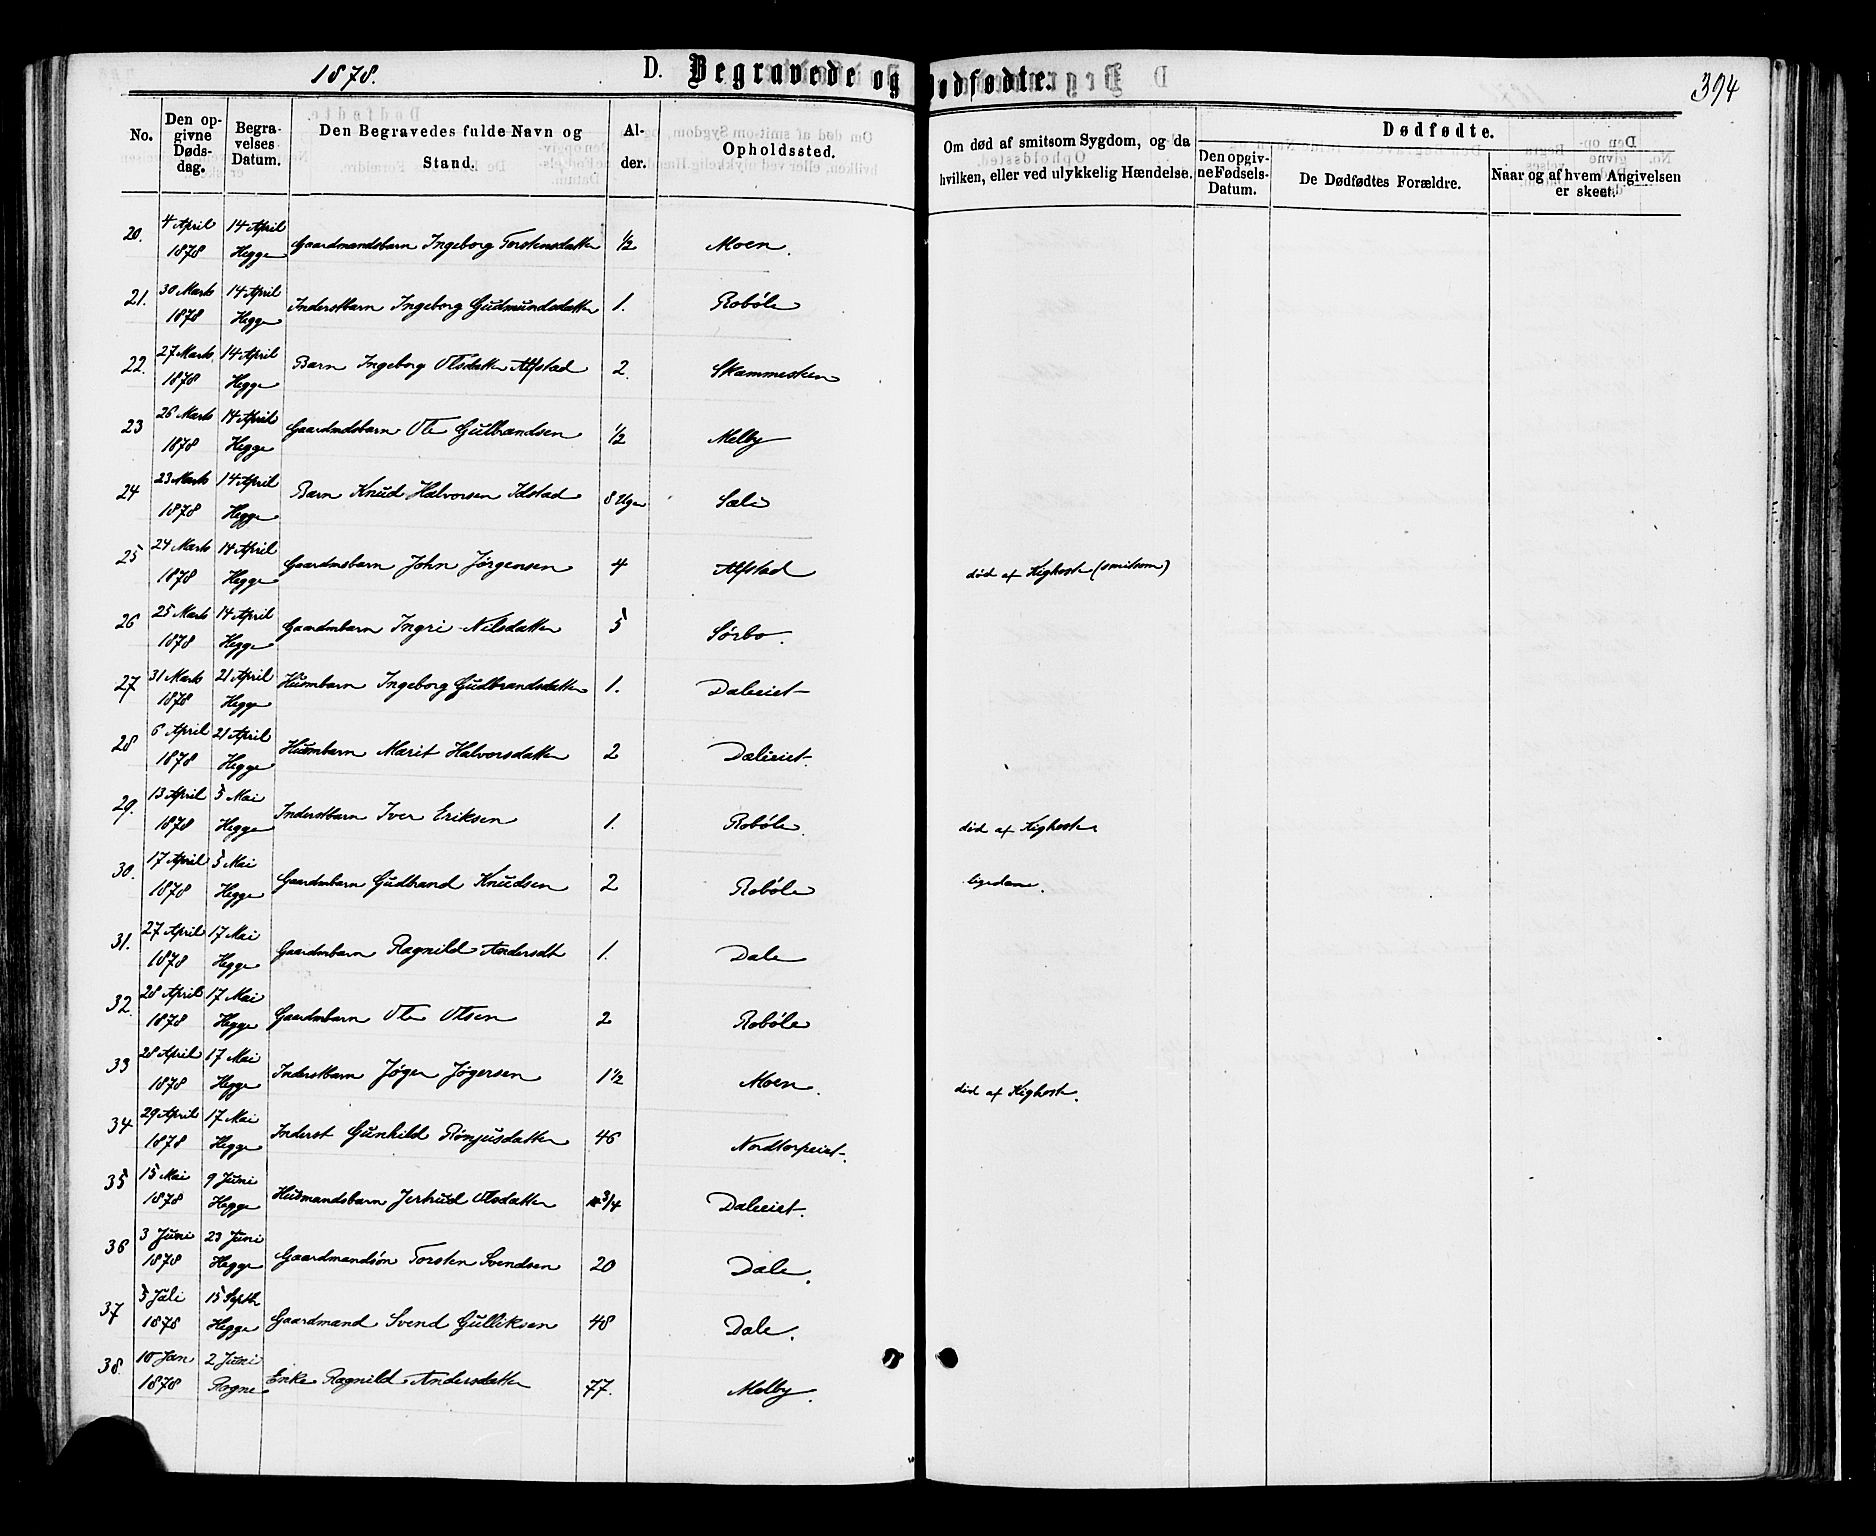 1878. D. Begravede og Dødfødte. 394
No. Den opgivne Dødsdag. Begravelses Datum. Den Begravedes fulde Navn og Stand. Alder. Opholdssted. Om død af smitsom Sygdom, og da hvilken, eller ved ulykkelig Hændelse. Dødfødte.
Den opgivne Fødsels-Datum. De Dødfødtes Forældre. Naar og af hvem Angivelsen er skeet.
20. 4 April 1878 14 April Hegge Gaardmandsbarn Ingeborg Torstensdatter 1/2 Moen.
21. 30 Marts 1878 14 April Hegge Inderstbarn Ingeborg Gudmundsdatter 1. Robøle
22. 27 Marts 1878 14 April Hegge Barn Ingeborg Olsdatter Alfstad 2. Skammesten
23 26 Marts 1878 14 April Hegge Gaardmdsbarn Ole Gulbrandsen 1/2 Melby
24 23 Marts 1878 14 April Hegge Barn Knud Halvorsen Idstad 8 Uger Sæli
25 24 Marts 1878 14 April Hegge Gaardmsbarn John Jørgensen 4 Alfstad død af Kighoste (smitsom)
26 25 Marts 1878 14 April Hegge Gaardmbarn Ingri Nilsdatter 5 Sørbo.
27 31 Marts 1878 21 April Hegge Husmbarn Ingeborg Gudbrandsdatter 1. Daleeiet
28 6 April 1878 21 April Hegge Husmbarn Marit Halvorsdatter 2 Daleeiet.
29. 13 April 1878 5 Mai Hegge Inderstbarn Iver Eriksen 1. Robøle. død af Kighoste
30. 17 April 1878 5 Mai Hegge Gaardmbarn Gudbrand Knudsen 2 Robøle ligedane.
31. 27 April 1878 17 Mai Hegge Gaardmbarn Ragnild Andersdt 1. Dale
32. 28 April 1878 17 Mai Hegge Gaardmbarn Ole Olsen 2 Robøle
33 28 April 1878 17 Mai Hegge Inderstbarn Jøger Jøgersen 1 1/2 Moen. død af Kighost.
34 29 April 1878 17 Mai Hegge Inderst Gunhild Rønjusdatter 46 Nordtorpeiet.
35 15 Mai 1878 9 Juni Hegge Husmandsbarn Jertrud Olsdatter 3/4 Daleeiet.
36 3 Juni 1878 23 Juni Hegge Gaardmandsøn Torsten Svendsen 20 Dale.
37 5 Juli 1878 15 Septb Hegge Gaardmand Svend Gulliksen 48 Dale.
38. 10 Jan 1878 2 Juni Rogne Enke Ragnild Andersdatter 77. Melby.